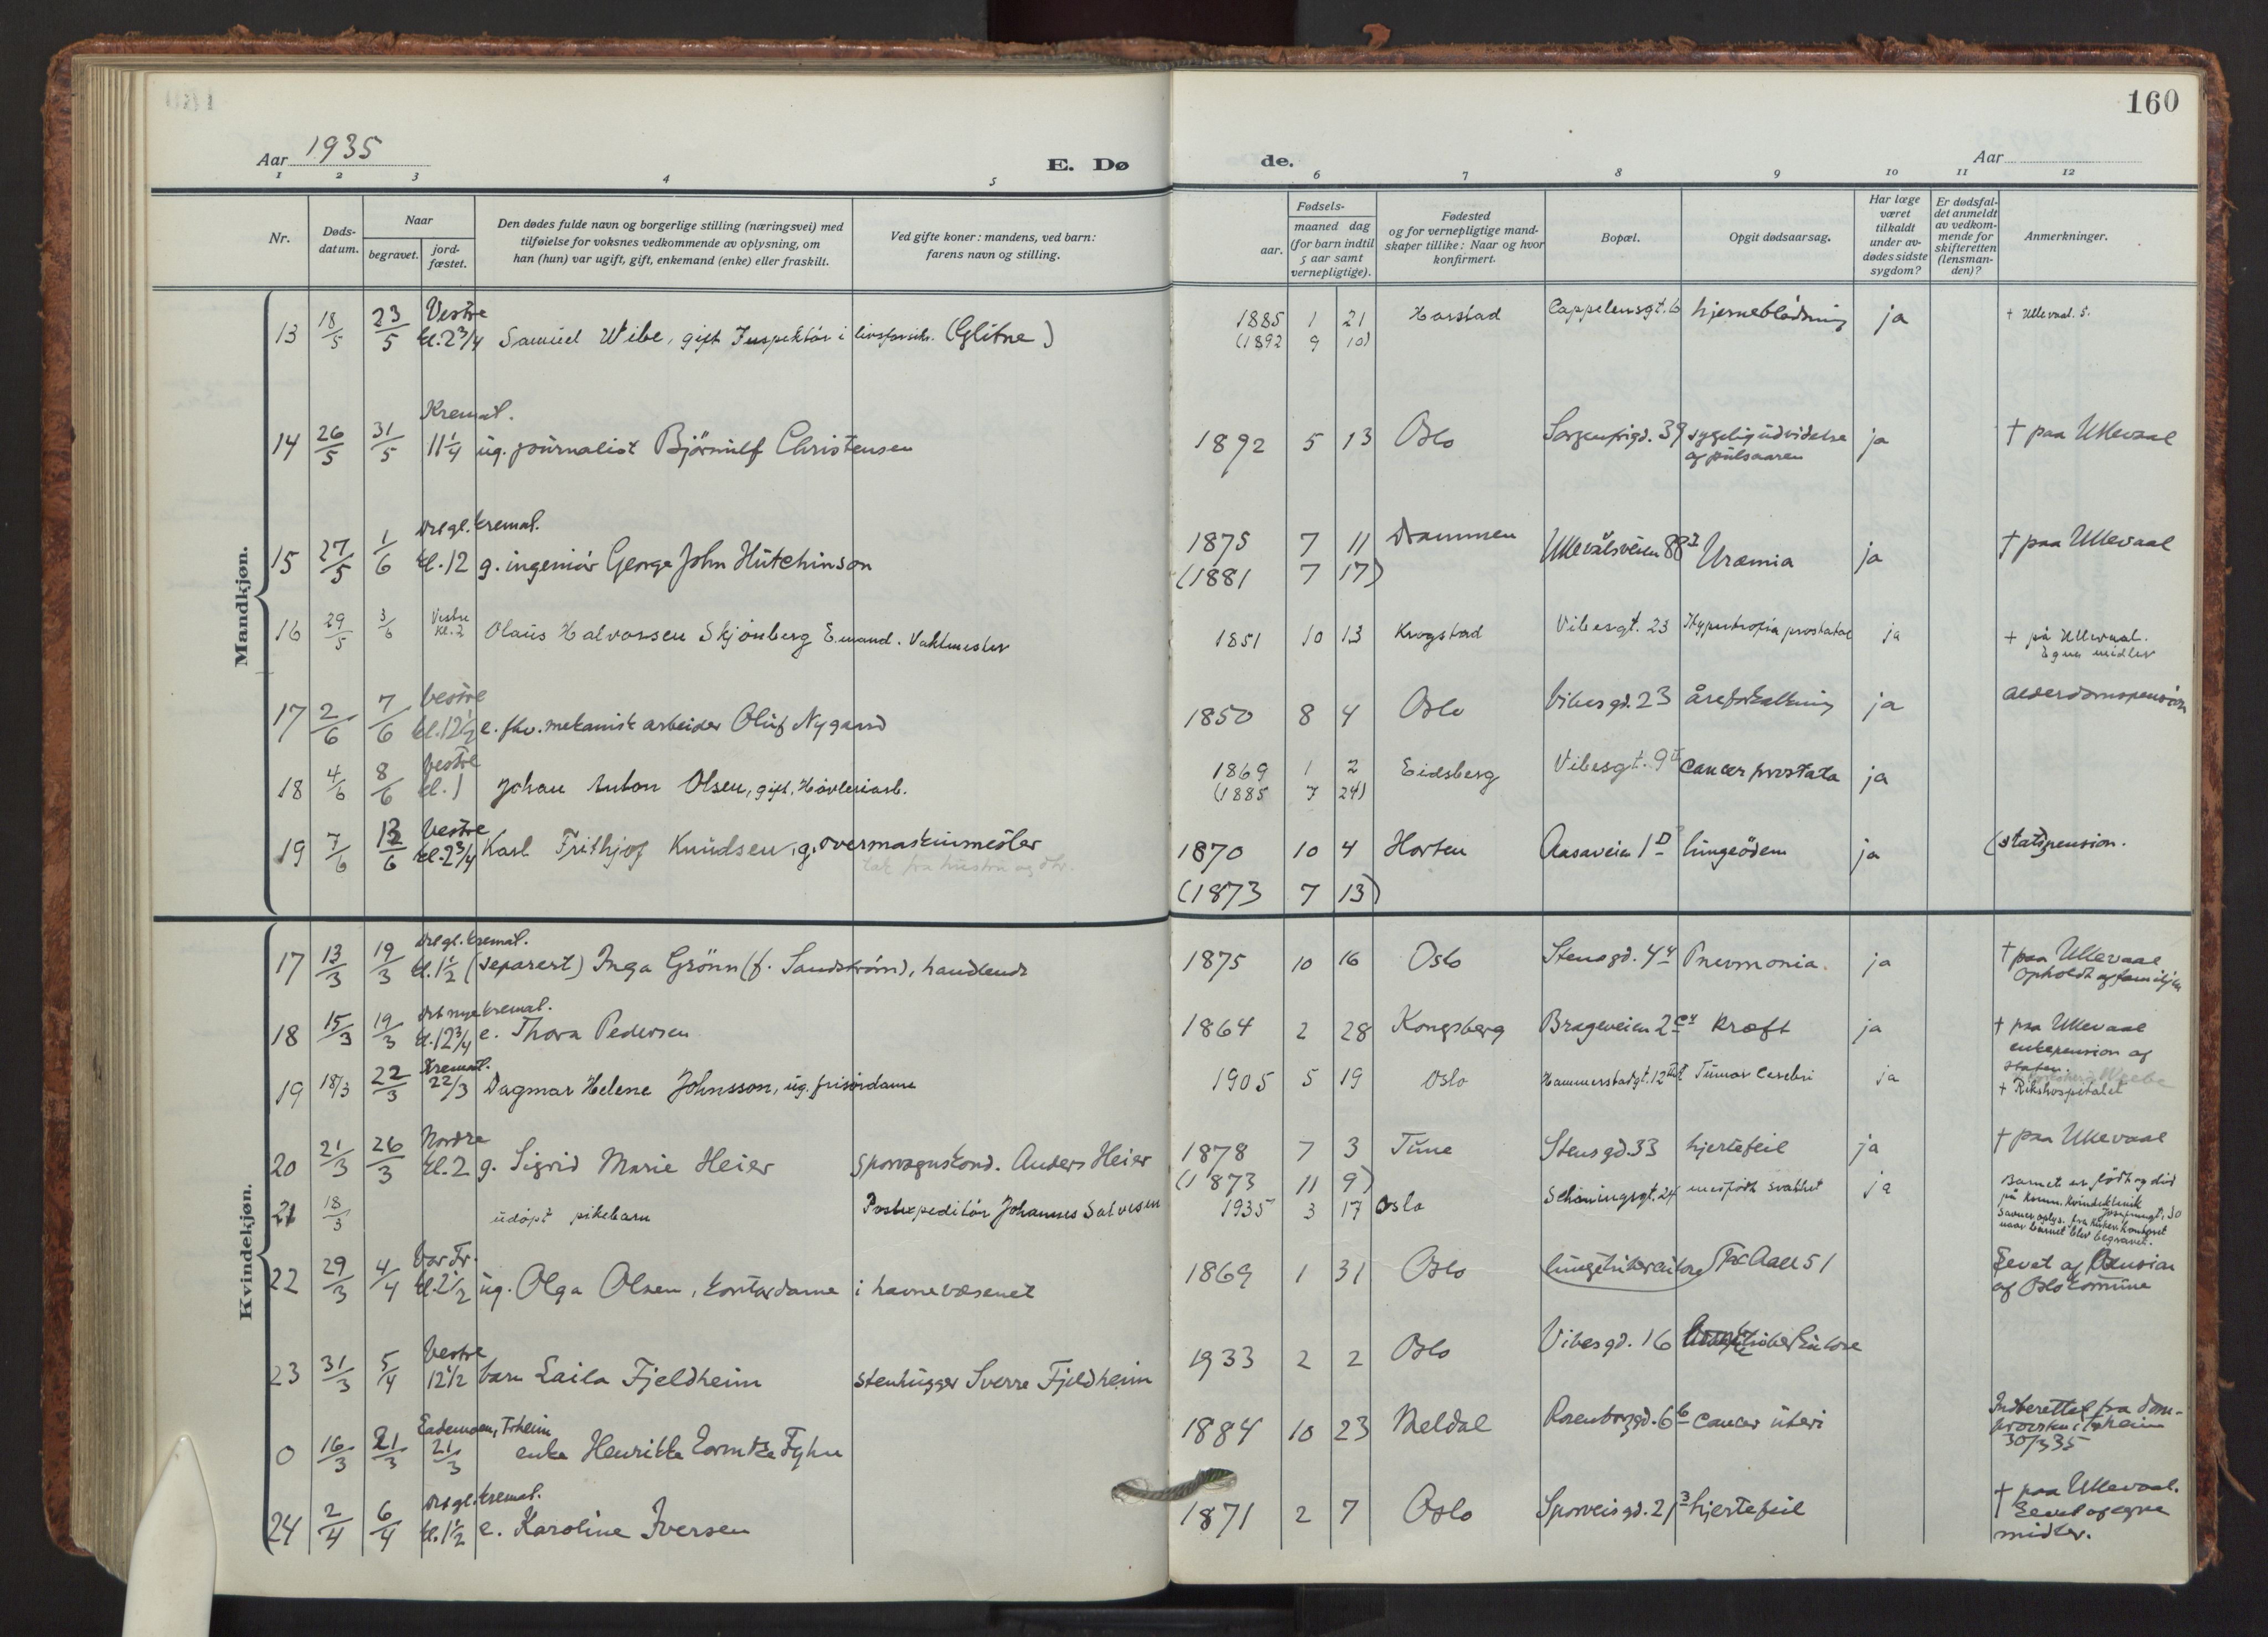 160
Aar 1935
E. Dø
de.
Aar
1 2 3 4 5 6 7 8 9 10 11 12
Nr.
Døds-
datum.
Naar
begravet.
jord-
fæstet.
Den dødes fulde navn og borgerlige stilling (næringsvei) med
tilføielse for voksnes vedkommende av oplysning, om
han (hun) var ugift, gift, enkemand (enke) eller fraskilt.
Ved gifte koner: mandens, ved barn:
farens navn og stilling.
Fødsels-
aar.
maaned dag
(for barn indtil
5 aar samt
vernepligtige).
Fødested
og for vernepligtige mand-
skaper tillike: Naar og hvor
konfirmert.
Bopæl.
Opgit dødsaarsag.
Har læge
været
tilkaldt
under av-
dødes sidste
sygdom?
Er dødsfal-
det anmeldt
av vedkom-
mende for
skifteretten
(lensman-
den)?
Anmerkninger.
Mandkjøn.
Vestre
13 18/5 23/5 kl. 2 3/4 Samuel Wibe, gift Inspektör i livsforsikr. (Glitne) 1885 1 21 Harstad Cappelensgt. 6 hjerneblödning ja † Ullevaal. S.
(1892 9 10)
Kremat.
14 26/5 31/5 11 1/4 ug. journalist Björnulf Christensen 1892 5 13 Oslo Sorgenfrigd. 39 sygelig udvidelse ja † paa Ullevaal
af pulsaaren
Det gl. kremat.
15 27/5 1/6 kl. 12 g. ingeniör George John Hutchinson 1875 7 11 Drammen Ullevålsveien 88 I Uræmia ja † paa Ullevaal
(1881 7 17)
16 29/5 3/6 Vestre kl. 2 Olaus Halvorsen Skjönberg E.mand. Vaktmester 1851 10 13 Krogstad Vibesgt. 23 Hypertrofia prostatae ja † på Ullevaal.
Egne midler
Vestre
17 2/6 7/6 kl. 12 1/2 e. fhv. mekanisk arbeider Oluf Nygaard 1850 8 4 Oslo Vibesgd. 23 åreforkalkning ja alderdomspension
Vestre
18 4/6 8/6 kl. 1 Johan Anton Olsen, gift, Hövleriarb. 1869 1 2 Eidsberg Vibesgt. 9 II cancer prostata ja
(1885 7 24)
Vestre
19 7/6 12/6 kl. 2 3/4 Karl Frithjof Knudsen, g. overmaskinmester 1870 10 4 Horten Aasaveien 1 D lungeödem ja (statspension.
tak fra hustru og
(1873 7 13)
Kvindekjøn.
Det gl. kremat.
17 13/3 19/3 kl. 1 1/2 (separert) Inga Grönn (f. Sandström), handlende 1875 10 16 Oslo Stensgd. 4 4 Pnevmonia. ja † paa Ullevaal
Opholdt af familjen
Det nye kremat.
18 15/3 19/3 kl. 12 3/4 e. Thora Pedersen 1864 2 28 Kongsberg Brageveien 2 c 4 kræft ja † paa Ullevaal
enkepension af
staten.
Kremat.
19 18/3 22/3 22/3 Dagmar Helene Johnsson, ug. frisördame 1905 5 19 Oslo Hammerstadgt. 12 Tumor Cerebri ja † Rikshospitalet
Nordre
20 21/3 26/3 kl. 2 g. Sigrid Marie Heier Sporvognskond. Anders Heier 1878 7 3 Tune Stensgd. 33 hjertefeil ja † paa Ullevaal
(1873 11 9)
21 18/3 udöpt pikebarn Postexpeditör Johannes Salvesen 1935 3 17 Oslo Schöningsgt. 24 medfödt svakhet ja Barnet er födt og död
på Komm. Kvindeklinik
Josefinesgt. 30
Savner oplys. fra Kontoret
naar barnet blev begravet.
Vor Fr.
22 29/3 4/4 kl. 2 1/2 ug. Olga Olsen, kontordame i havnevæsenet 1869 1 31 Oslo lungetuberculose Aall 51 Levet af Pension
af Oslo Kommune
Vestre
23 31/3 5/4 12 1/2 barn Laila Fjeldheim stenhugger Sverre Fjeldheim 1933 2 2 Oslo Vibesgd. 16
Lademoen, Trheim
0 16/3 21/3 21/3 enke Henrikke Fyhn 1884 10 23 Meldal Rosenborggd. 6 b cancer uteri Indberettet fra dom-
provsten i Trheim
30/3 35
Det gl. kremat.
24 2/4 6/4 kl. 1 1/2 e. Karoline Iversen 1871 2 7 Oslo Sporveisgd. 21 3 hjertefeil † paa Ullevaal.
Levet af egne
midler.